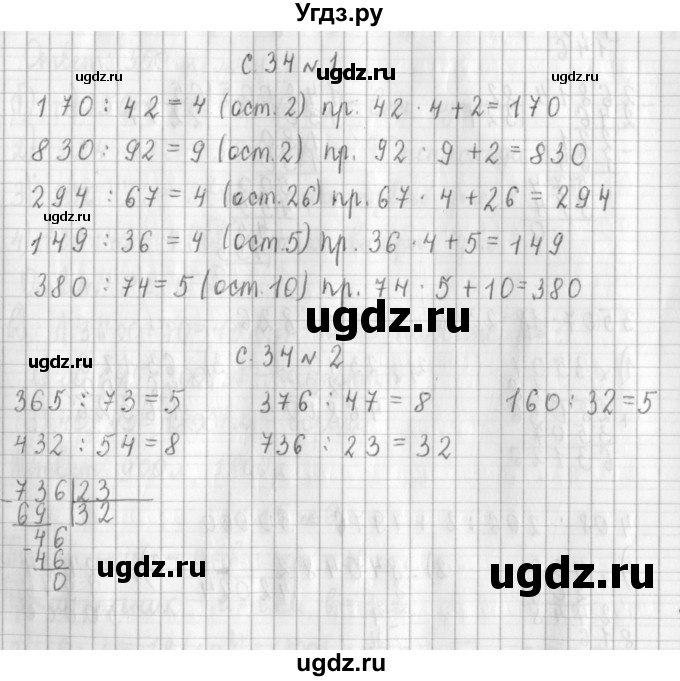 Угдз.ру
с. 34 № 1
ugdz.ru ugdz.ru
170 : 42 = 4 (ост. 2) пр. 42 · 4 + 2 = 170
830 : 92 = 9 (ост. 2) пр. 92 · 9 + 2 = 830
294 : 67 = 4 (ост. 26) пр. 67 · 4 + 26 = 294
ugdz.ru
149 : 36 = 4 (ост. 5) пр. 36 · 4 + 5 = 149
380 : 74 = 5 (ост. 10) пр. 74 · 5 + 10 = 380
ugdz.ru
ugdz.ru
с. 34 № 2
365 : 73 = 5 376 : 47 = 8 160 : 32 = 5
432 : 54 = 8 736 : 23 = 32
736 23
69 32
46
46
0
ugdz.ru
ugdz.ru
ugdz.ru